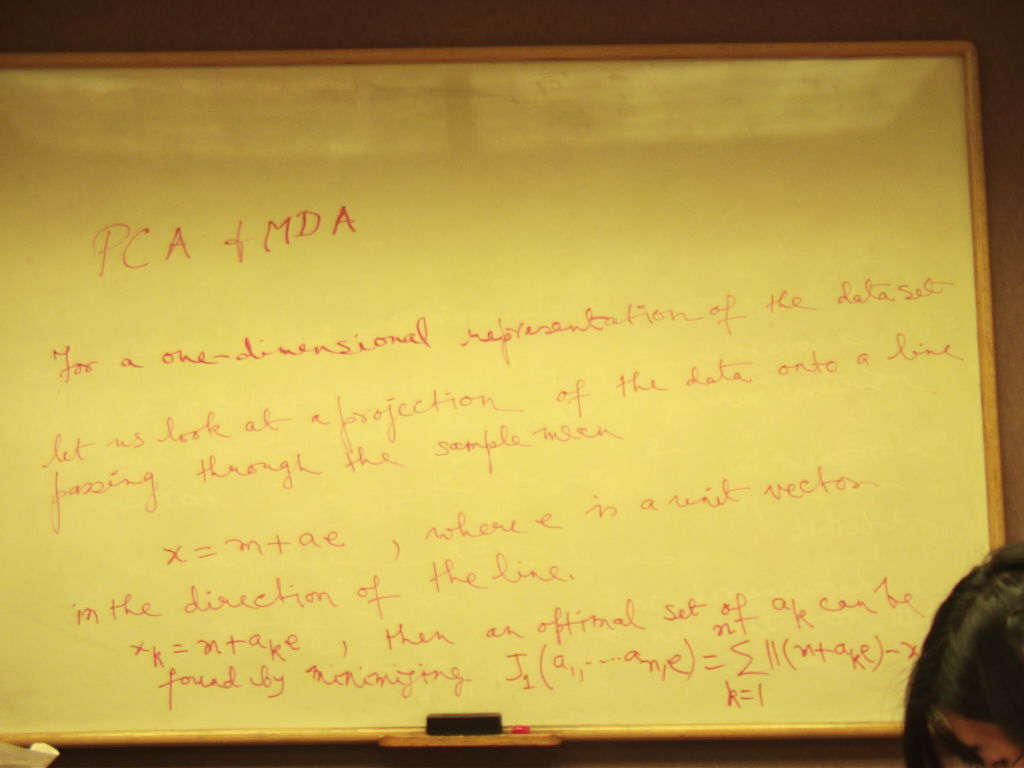 PCA & MDA
For a one-dimensional representation of the dataset
let us look at a projection of the data onto a line
passing through the sample mean
x = m + ae , where e is a unit vector
in the direction of the line.
xₖ = m + aₖe , then an optimal set of aₖ can be
found by minimizing J₁(a₁, ... aₙ, e) = Σ_{k=1}^{n} ||(m + aₖe) - x